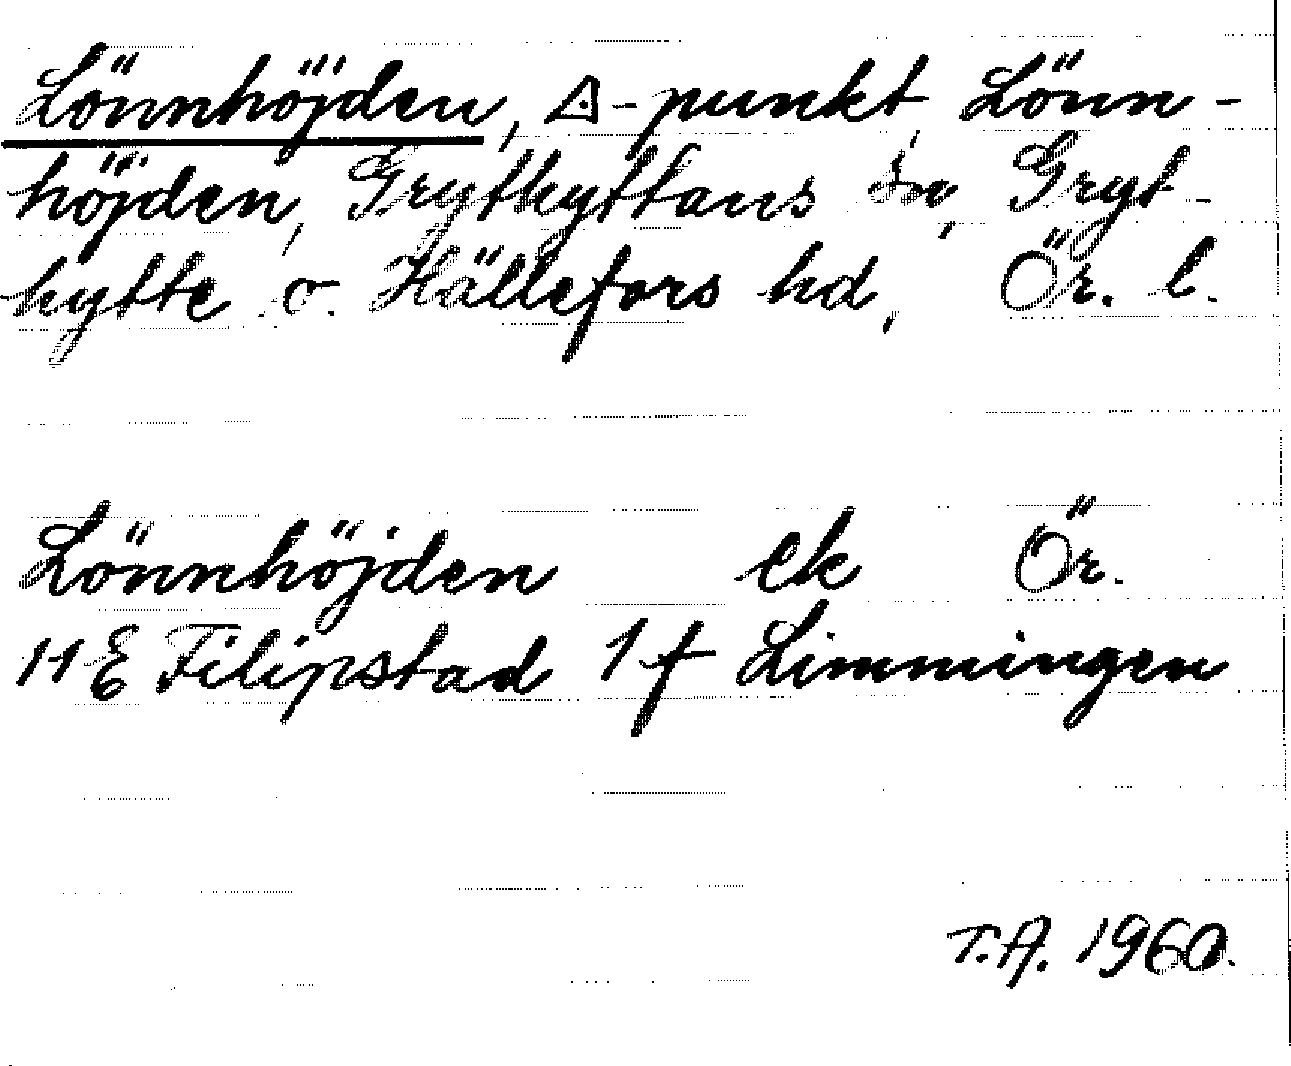 Lönnhöjden, △-punkt, Lönn-
höjden, Grythyttans sn, Gryt-
hytte o. Hällefors hd, Ör. l.
Lönnhöjden ek Ör.
11E Filipstad 1f Limmingen
T.A. 1960.